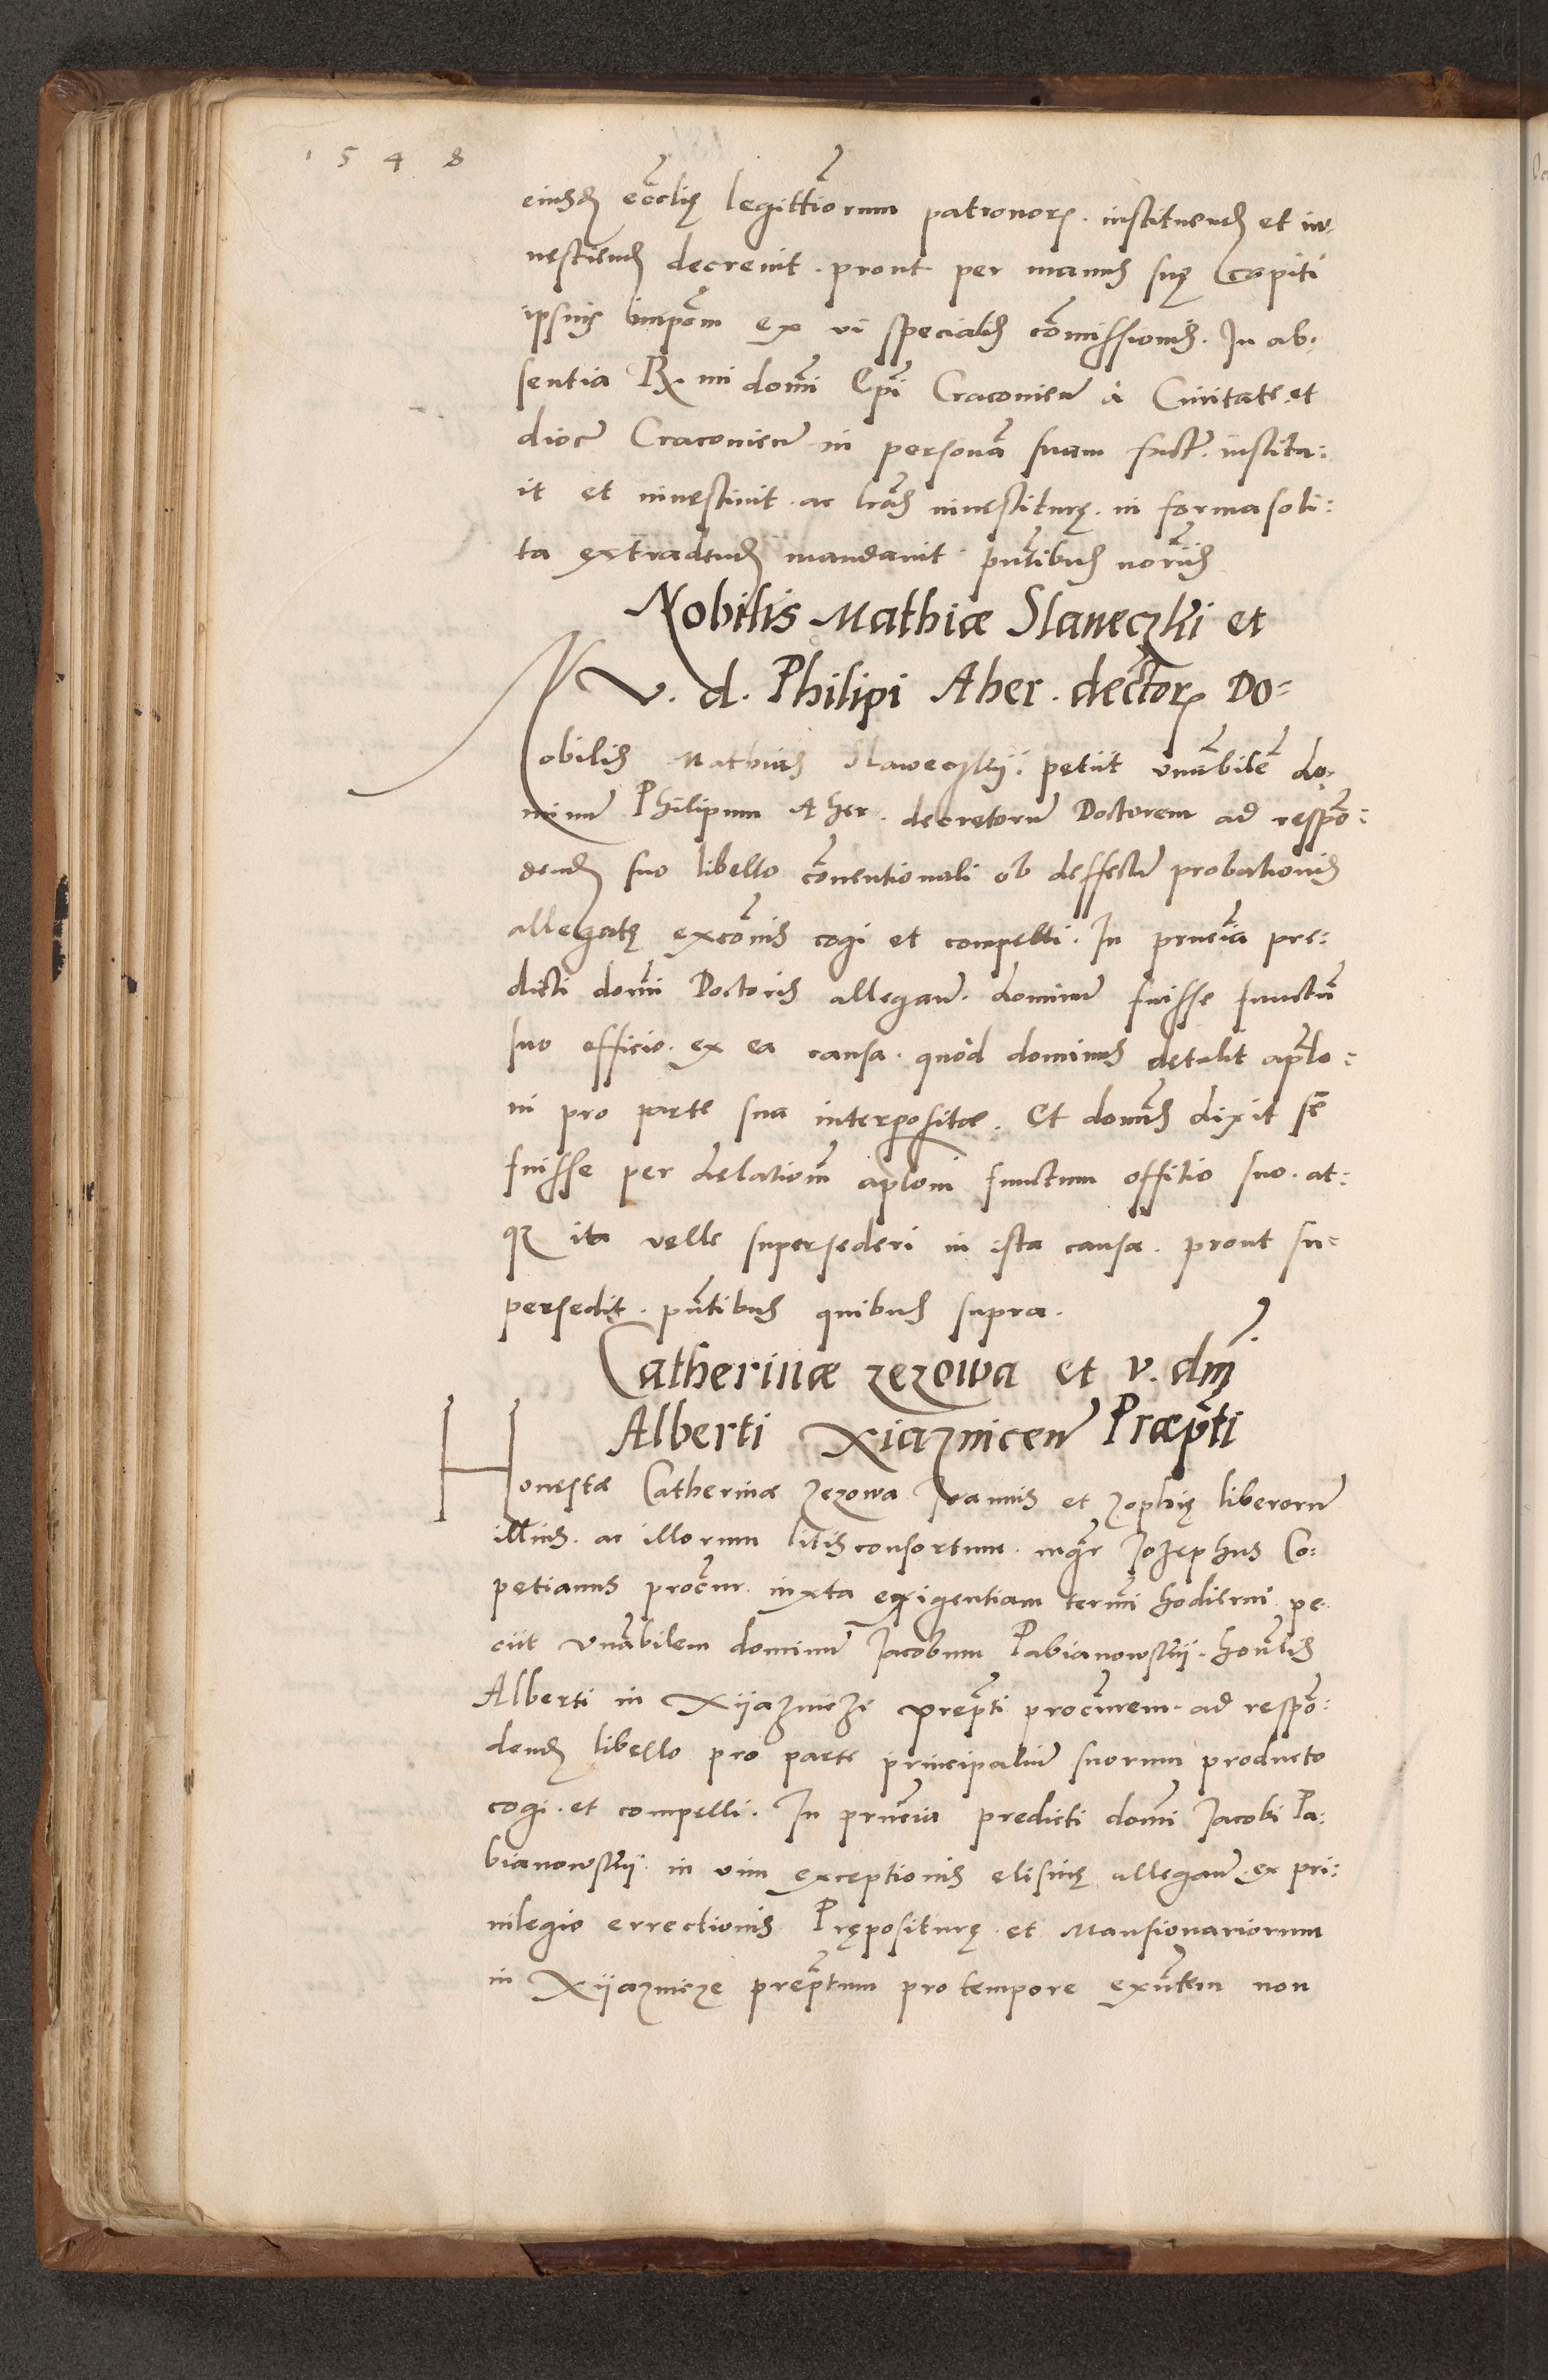 1548
eiusdꝫ eccl̃ię legittĩorum patronorꝫ. instituendꝫ et in⸗
uestiendꝫ decreuit. prout per manus suę Capiti
ipsius impõm ex vi specialis com̃issionis. In ab⸗
sentia R. mi dom̃i Ep̃i Craconiен̃ à Ciuitate et
dioc̃ Cracouieñ in personã suam fact̃. institu:
it et inuestiuit. ac lrãs inuestiturę. in forma soli:
ta extradendꝫ mandauit. pñtibus norijs
Nobilis Mathiæ Slaweczki et
V. d. Philipi Aher. dectorꝫ Do=
Nobilis Mathias Slaweczkij. petiit vnãbilẽ do⸗
minũ Philipum Aher. decretorũ Doctorem ad respõ:
dendꝫ suo libello cõuentionali ob deffectũ probationis
allegatę excõnis cogi et compelli. In pñcia pre:
dicti dom̃i Doctoris allegañ. dominũ fuisse functũ
suo officio. ex ea causa. quòd dominus detulit aplo:
ni pro parte sua interpositæ. Et dom̃s dixit sẽ
fuisse per delationẽ aploni functum offitio suo. at:
qꝫ ita velle supersederi in ista causa. prout su=
persedit. pñtibus quibus supra.
Catherinæ zezowa et v. dm̃
Alberti Xiaznicen̄ Præpt̃i
Honestæ Catherinæ zezowa Ioannis et zophię liberorũ
illius. ac illorum litis consortum. mgr̃ Iozephus Co:
petianus procur̃. iuxta exigentiam term̃i hodierni pe⸗
ciit vnãbilem dominũ Iacobum Pabianowskij. honlis
Alberti in Xijaznicze prepti procurem. ad respõ:
dendꝫ libello pro parte principaliũ suorum producto
cogi. et compelli. In pñcia predicti dom̃i Iacobi Pa:
bianowskij. in vim exceptionis elisiuę allegañ. ex pri:
uilegio errectionis Prępositurę et Mansionariorum
in Xijaznicze preptum pro tempore exñtem non